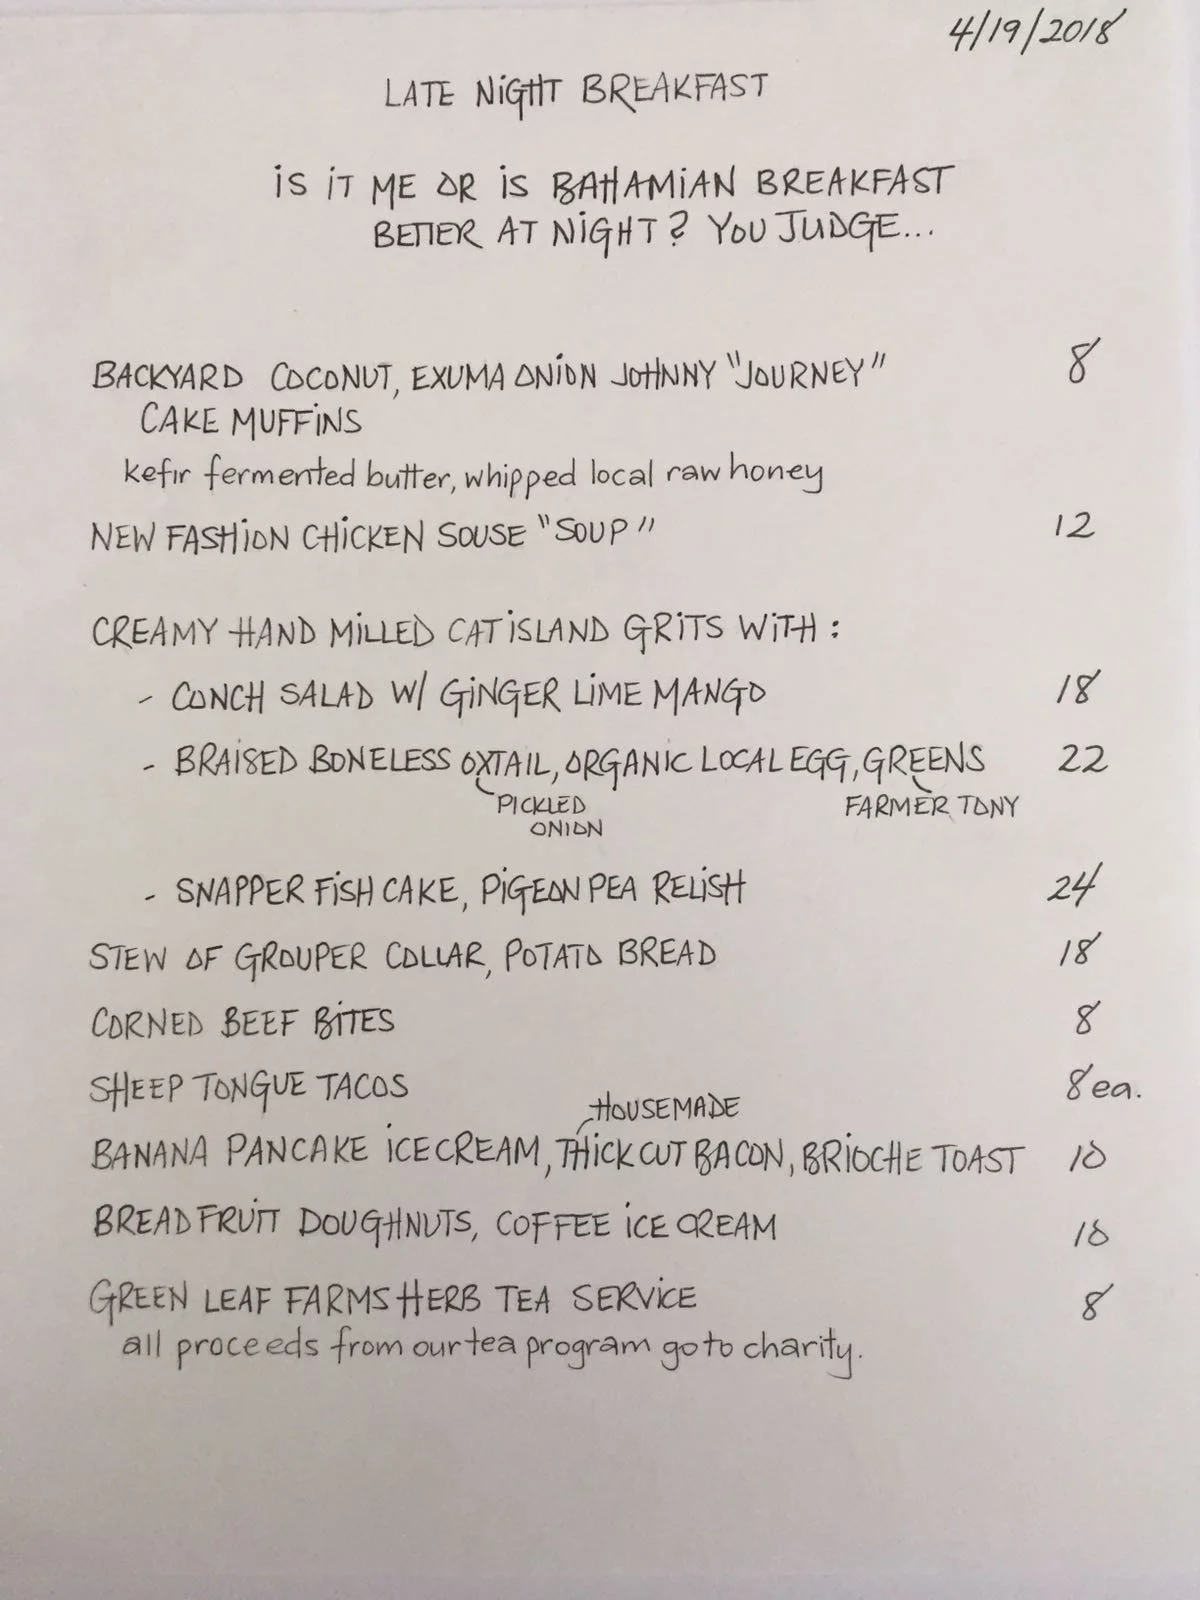 4/19/2018
LATE NiGHT BREAKFAST
iS iT ME OR iS BAHAMiAN BREAKFAST
BETTER AT NiGHT? YOU JUDGE...
BACKYARD COCONUT, EXUMA ONiON JOHNNY "JOURNEY" 8
CAKE MUFFiNS
kefir fermented butter, whipped local raw honey
NEW FASHiON CHiCKEN SOUSE "SOUP" 12
CREAMY HAND MiLLED CAT iSLAND GRiTS WiTH:
- CONCH SALAD W/ GiNGER LiME MANGO 18
- BRAiSED BONELESS OXTAIL, ORGANiC LOCAL EGG, GREENS 22
PICKLED FARMER TONY
ONION
- SNAPPER FiSH CAKE, PiGEON PEA RELiSH 24
STEW OF GROUPER COLLAR, POTATO BREAD 18
CORNED BEEF BiTES 8
SHEEP TONGUE TACOS 8 ea.
HOUSEMADE
BANANA PANCAKE iCE CREAM, THiCK CUT BACON, BRiOCHE TOAST 10
BREADFRUiT DOUGHNUTS, COFFEE iCE CREAM 10
GREEN LEAF FARMS HERB TEA SERViCE 8
all proceeds from our tea program go to charity.